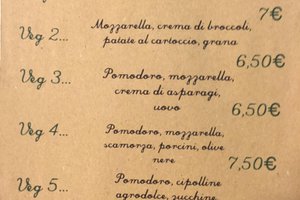 7€
Veg 2...
Mozzarella, crema di broccoli,
patate al cartoccio, grana
6,50€
Veg 3...
Pomodoro, mozzarella,
crema di asparagi,
uovo
6,50€
Veg 4...
Pomodoro, mozzarella,
scamorza, porcini, olive
nere
7,50€
Veg 5...
Pomodoro, cipolline
agrodolce, zucchine